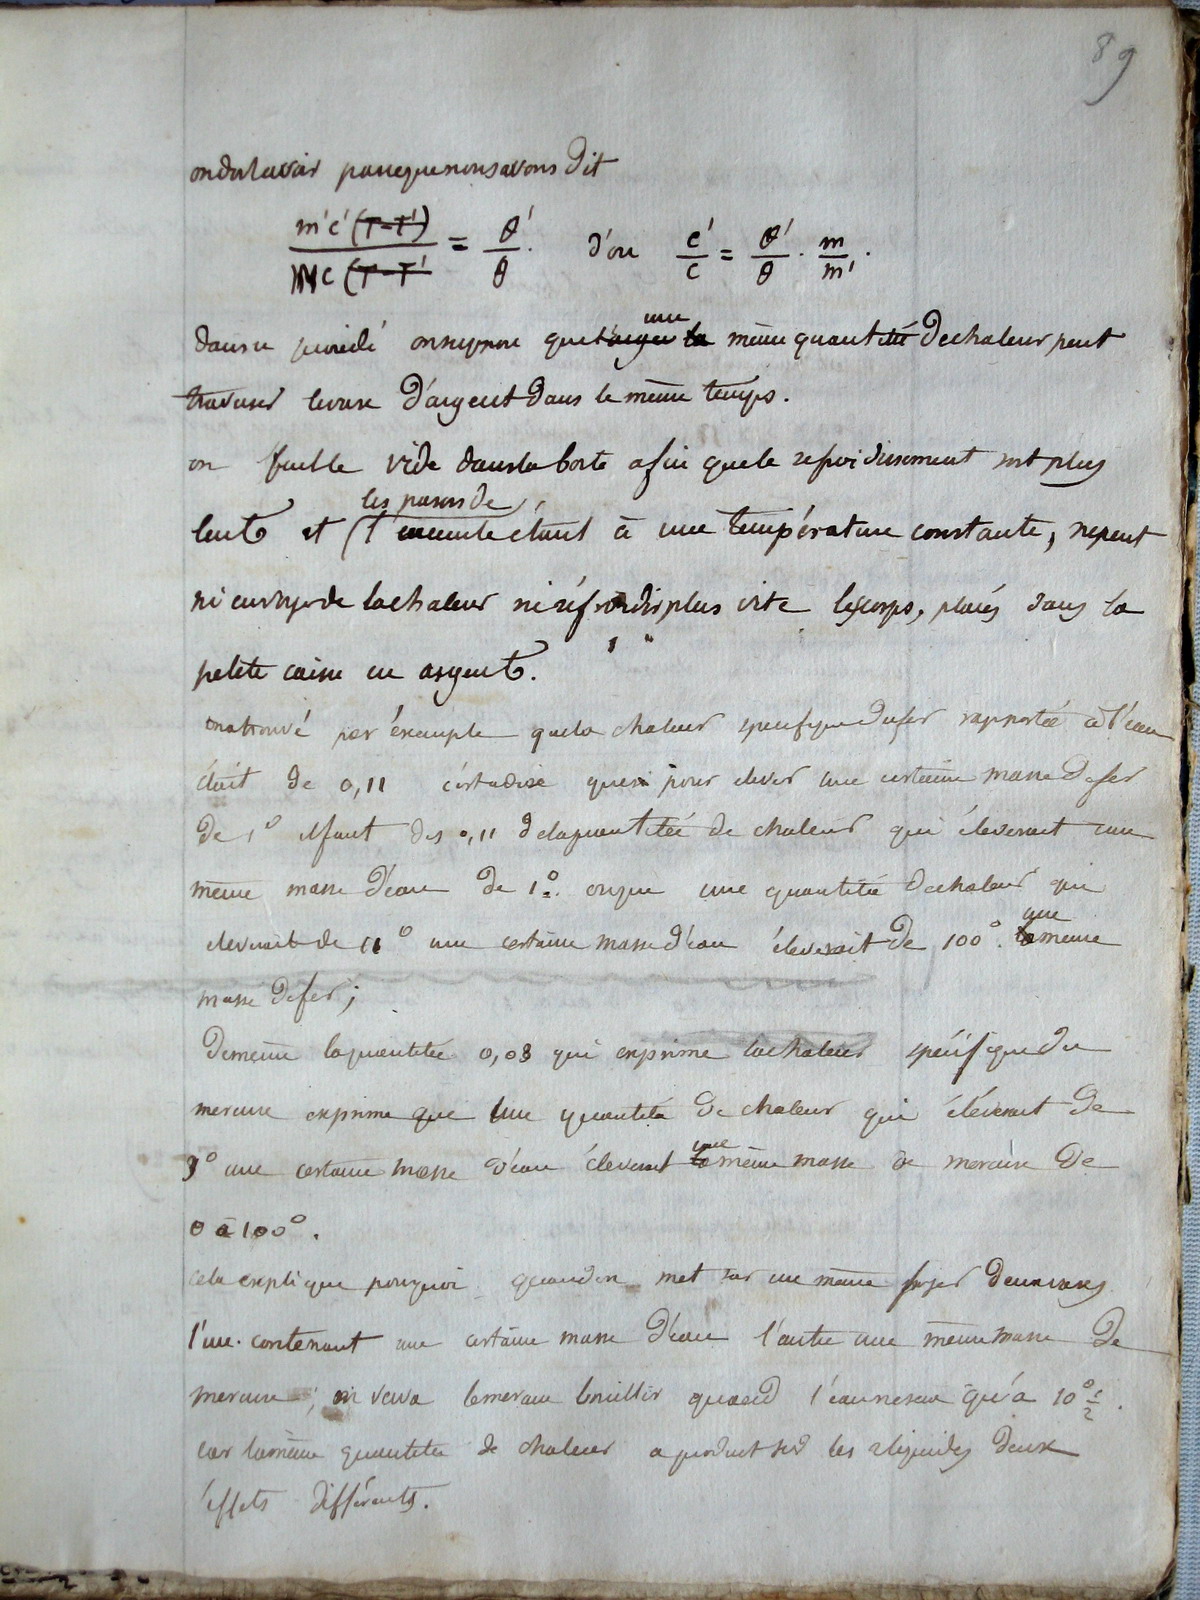 89
on doit avoir parceque nous avons dit
m'c'(T-T') / mc(T-T') = θ'/θ. d'ou c'/c = θ'/θ . m/m'.
dans ce procédé on suppose que une même quantité de chaleur peut
traverser le vase d'argent dans le même temps.
on fait le vide dans la boite afin que le refroidissement soit plus
les parois de
lent et l'enceinte étant à une température constante, ne peut
ni envoyer de la chaleur ni réfroidir plus vite les corps, placés dans la
petite caisse en argent.
on a trouvé par éxemple que la chaleur specifique du fer rapportée à l'eau
était de 0,11 c'est a dire que si pour elever une certaine masse de fer
de 1° il faut des 0,11 de la quantitée de chaleur qui éleverait une
même masse d'eau de 1°. ou que une quantitée de chaleur qui
eleverait de 11° une certaine masse d'eau éleverait de 100°. une meme
masse de fer;
de même la quantitée 0,03 qui exprime la chaleur spécifique du
mercure exprime que une quantité de chaleur qui éléverait de
3° une certaine masse d'eau éleverait une même masse de mercure de
0 à 100°.
cela explique pourquoi quand on met sur un même foyer deux vases
l'un contenant une certaine masse d'eau l'autre une même masse de
mercure; on verra le mercure bouillir quand l'eau ne sera qu'à 10° 1/2.
car la même quantitée de chaleur a produit sur les 2 liquides deux
éffets différents.